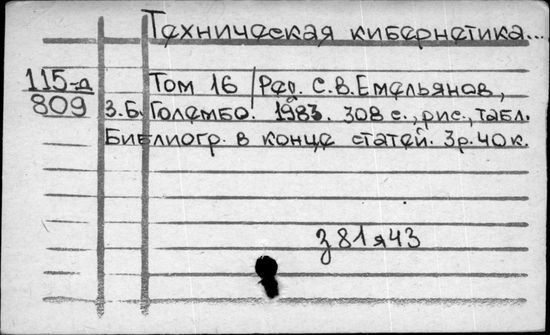 Техническая кибернетика...
115-д Том 16 / Ред. С.В.Емельянов,
809 З.Б. Голембо. 1983. 308 с., рис., табл.
Библиогр. в конце статей. 3р.40к.
з81я43